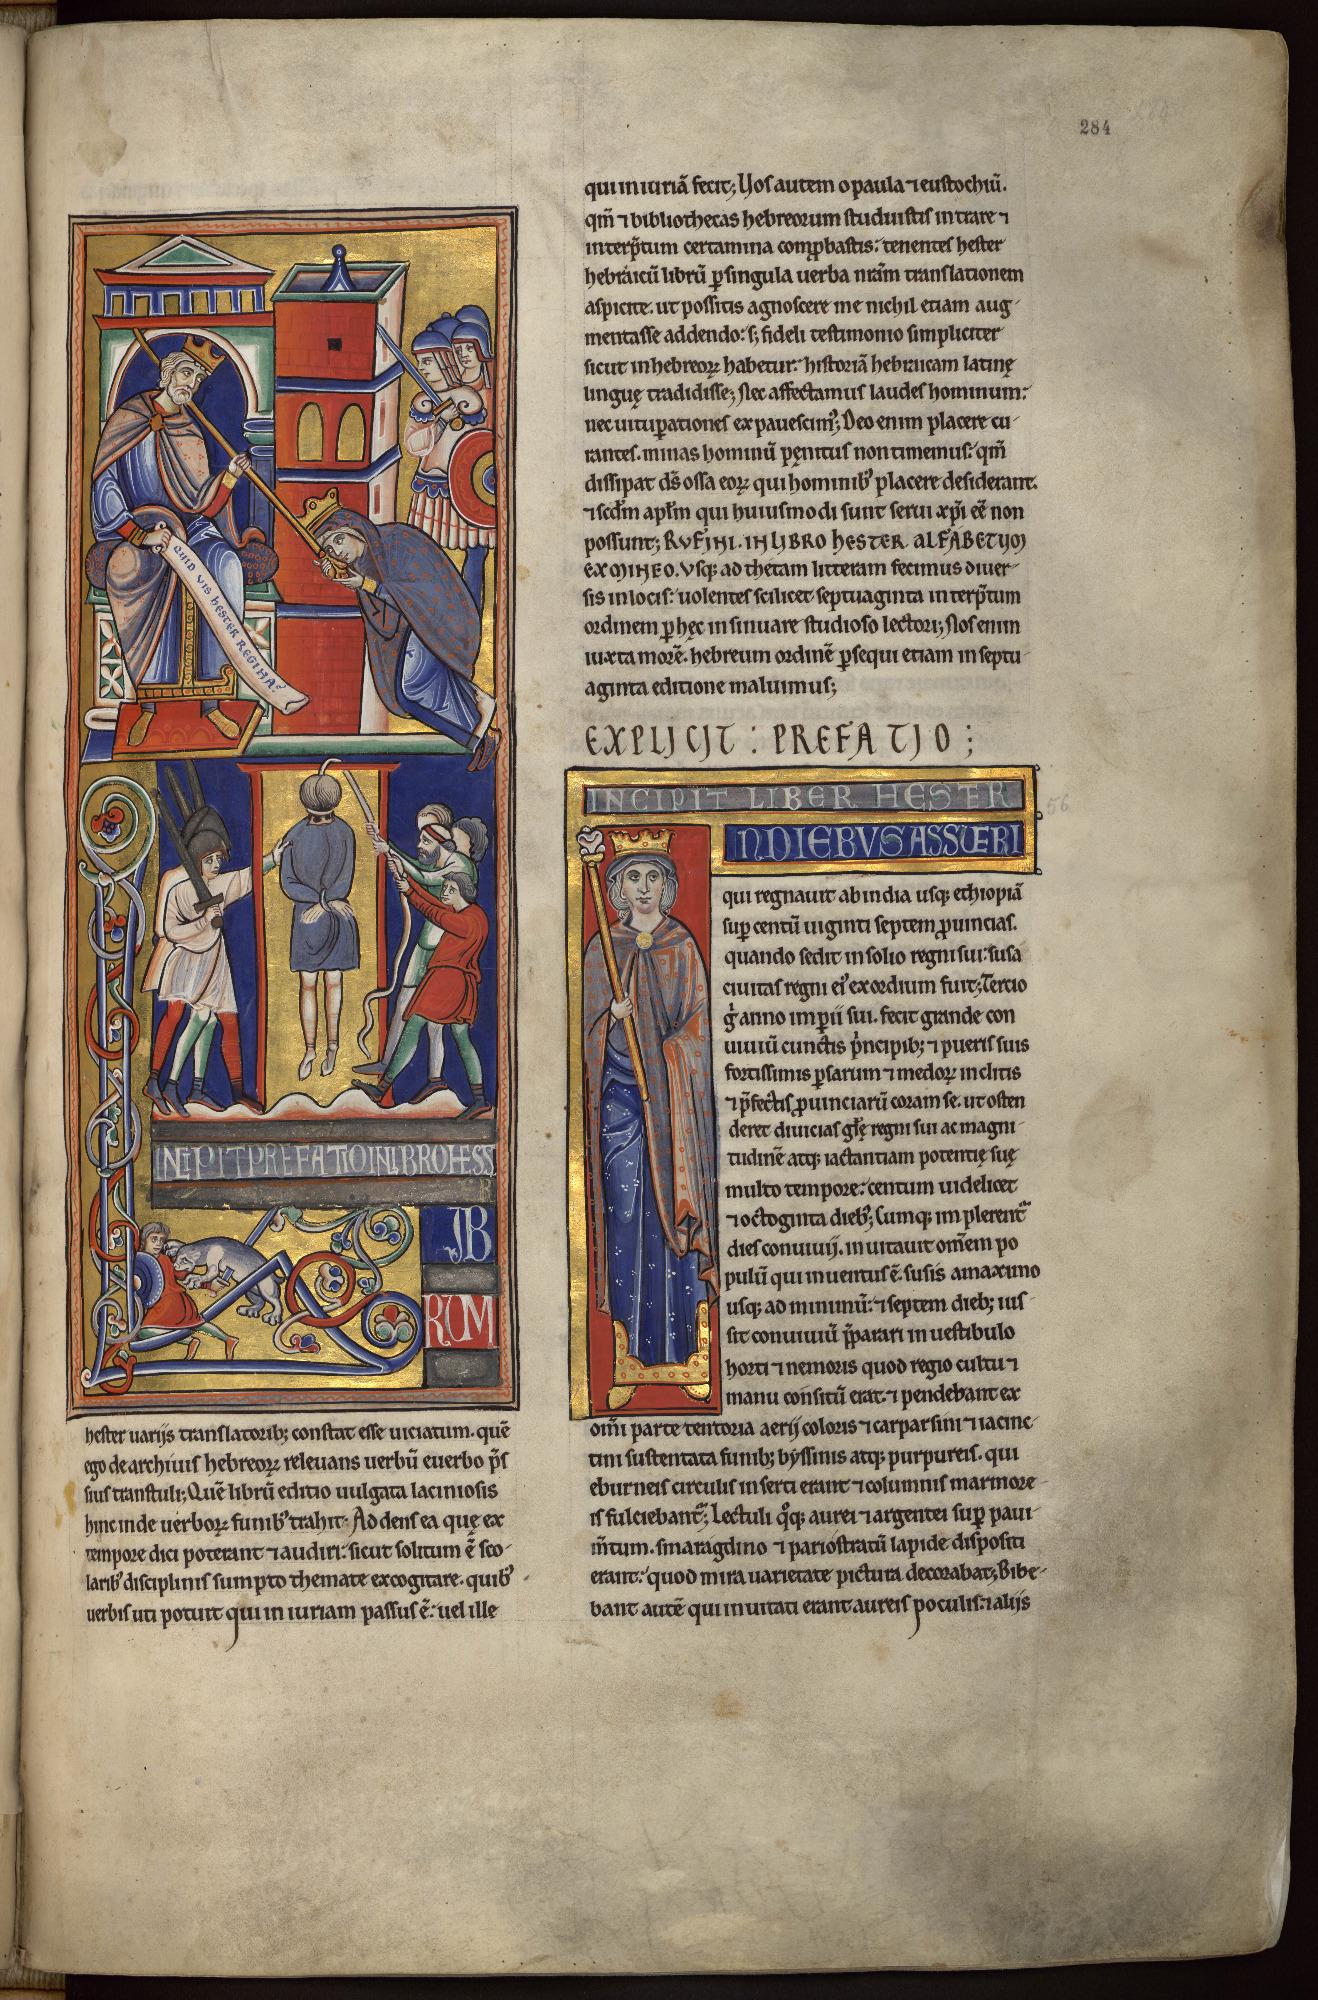 284
QUID VIS HESTER REGINA?
INCIPIT PREFATIO IN LIBRO HESS
ER
L IB
RUM
hester uarijs translatorib; constat esse uiciatum. quē
ego de archiuis hebreoꝝ releuans uerbū euerbo p̄s
sius transtuli; Quē librū editio uulgata laciniosis
hinc inde uerboꝝ funibꝰ trahit. Addens ea quę ex
tempore dici poterant ⁊ audiri. sicut solitum ē sco-
laribꝰ disciplinis sumpto themate excogitare. quibꝰ
uerbis uti potuit qui in iuriam passus ē. uel ille
qui in iuriā fecit; Uos autem o paula ⁊ eustochiū.
qm̄ ⁊ bibliothecas hebreorum studuistis intrare ⁊
interp̄tum certamina comꝓbastis. tenentes hester
hebraicū librū ꝑ singula uerba nr̄am translationem
aspicite. ut possitis agnoscere me nichil etiam aug-
mentasse addendo: s; fideli testimonio simpliciter
sicut in hebreoꝝ habetur. historiā hebraicam latinę
linguę tradidisse; Nec affectamus laudes hominum:
nec uituꝑationes expauescimꝰ; Deo enim placere cu-
rantes. minas hominū pęnitus non timemus: qm̄
dissipat ds̄ ossa eoꝝ qui hominibꝰ placere desiderant.
⁊ scdm̄ apl̄m qui huiusmodi sunt serui xp̄i eē non
possunt; RUFINI. IN LIBRO HESTER. ALFABETUM
EX MINEO. Usq; ad thetam litteram fecimus diuer-
sis in locis: uolentes scilicet septuaginta interp̄tum
ordinem ꝑ hęc insinuare studioso lectori; Nos enim
iuxta morē. hebreum ordinē ꝑsequi etiam in septu-
aginta editione maluimus;
EXPLICIT : PREFATIO ;
INCIPIT LIBER HESTER
56
IN DIEBUS ASSUERI
qui regnauit ab india usq; ethiopiā
suꝑ centū uiginti septem ꝓuincias.
quando sedit in solio regni sui: susa
ciuitas regni eiꝰ exordium fuit; Tercio
gͥ anno imꝑii sui. fecit grande con
uiuiū cunctis pͥncipib; ⁊ pueris suis
fortissimis ꝑsarum ⁊ medoꝝ inclitis
⁊ p̄fectis ꝓuinciarū coram se. ut osten
deret diuicias gl̄ę regni sui ac magni-
tudinē atq; iactantiam potentię suę
multo tempore: centum uidelicet
⁊ octoginta diebꝰ; Cumq; implerentᷣ
dies conuiuij. inuitauit om̄em po
pulū qui inuentus ē. susis a maximo
usq; ad minimū: ⁊ septem dieb; ius
sit conuiuiū p̄parari in uestibulo
horti ⁊ nemoris quod regio cultu ⁊
manu consitū erat. ⁊ pendebant ex
om̄i parte tentoria aerij coloris ⁊ carpassini ⁊ iacinc-
tini sustentata funib; byssinis atq; purpureis. qui
eburneis circulis inserti erant ⁊ columnis marmore-
is fulciebantᷣ; Lectuli qͦq; aurei ⁊ argentei suꝑ paui-
m̄tum. smaragdino ⁊ pario stratū lapide dispositi
erant: quod mira uarietate pictura decorabat; Bibe-
bant autē qui inuitati erant aureis poculis: ⁊ alijs